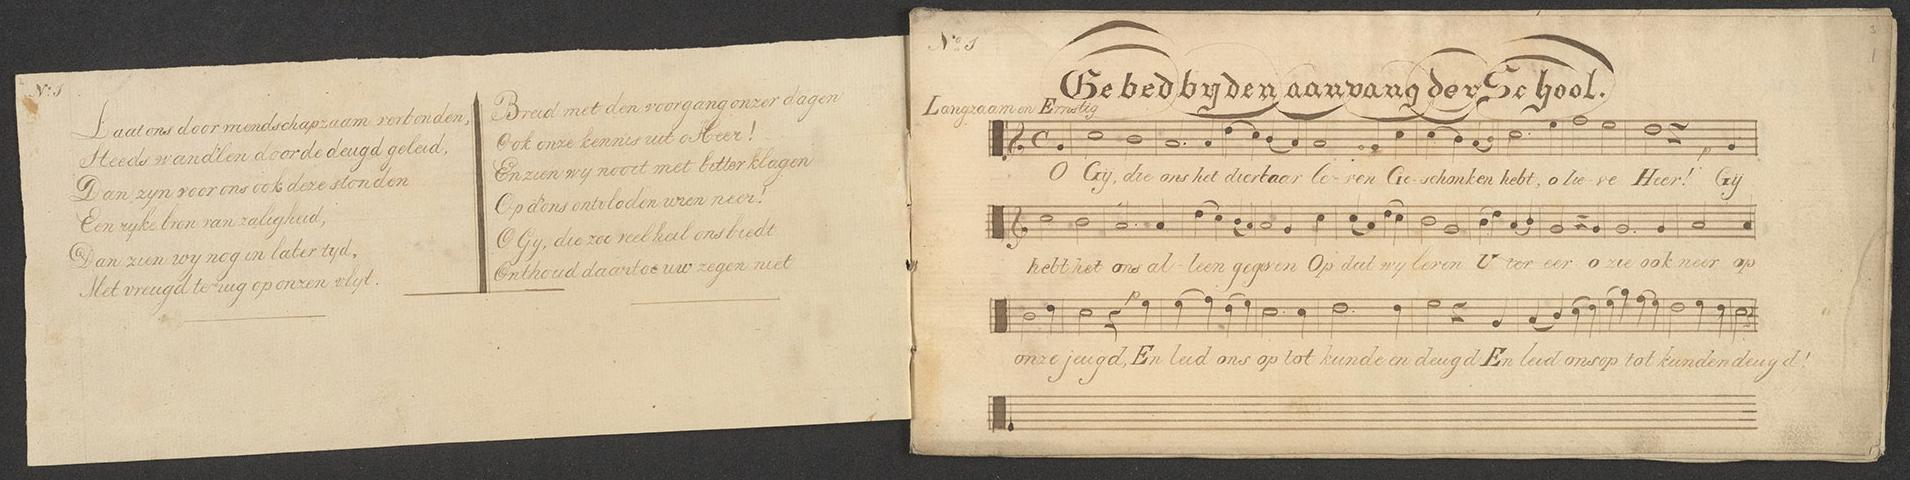 No. 1
Laat ons door mendschap zaam verbonden,
Steeds wand'len door de deugd geleid,
Dan zyn voor ons ook deze stonden
Een ryke bron van zaligheid,
Dan zien wy nog in later tyd,
Met vreugd terug op onzen vlyt.
Breid met den voorgang onzer dagen
Ook onze kennis uit o Heer!
En zien wy nooit met bitter klagen
Op d'ons ontvloden uren neer!
O Gy, die zoo veel heil ons biedt
Onthoud daartoe uw zegen niet
No. 1
Gebed by den aanvang der School.
Langzaam en Ernstig
O Gij, die ons het dierbaar le-ven Ge-schonken hebt, o lie-ve Heer! Gij
p
hebt het ons al-leen gegeven Op dat wy leven U ter eer o zie ook neer op
p
onze jeugd, En leid ons op tot kunde en deugd En leid ons op tot kund en deugd!